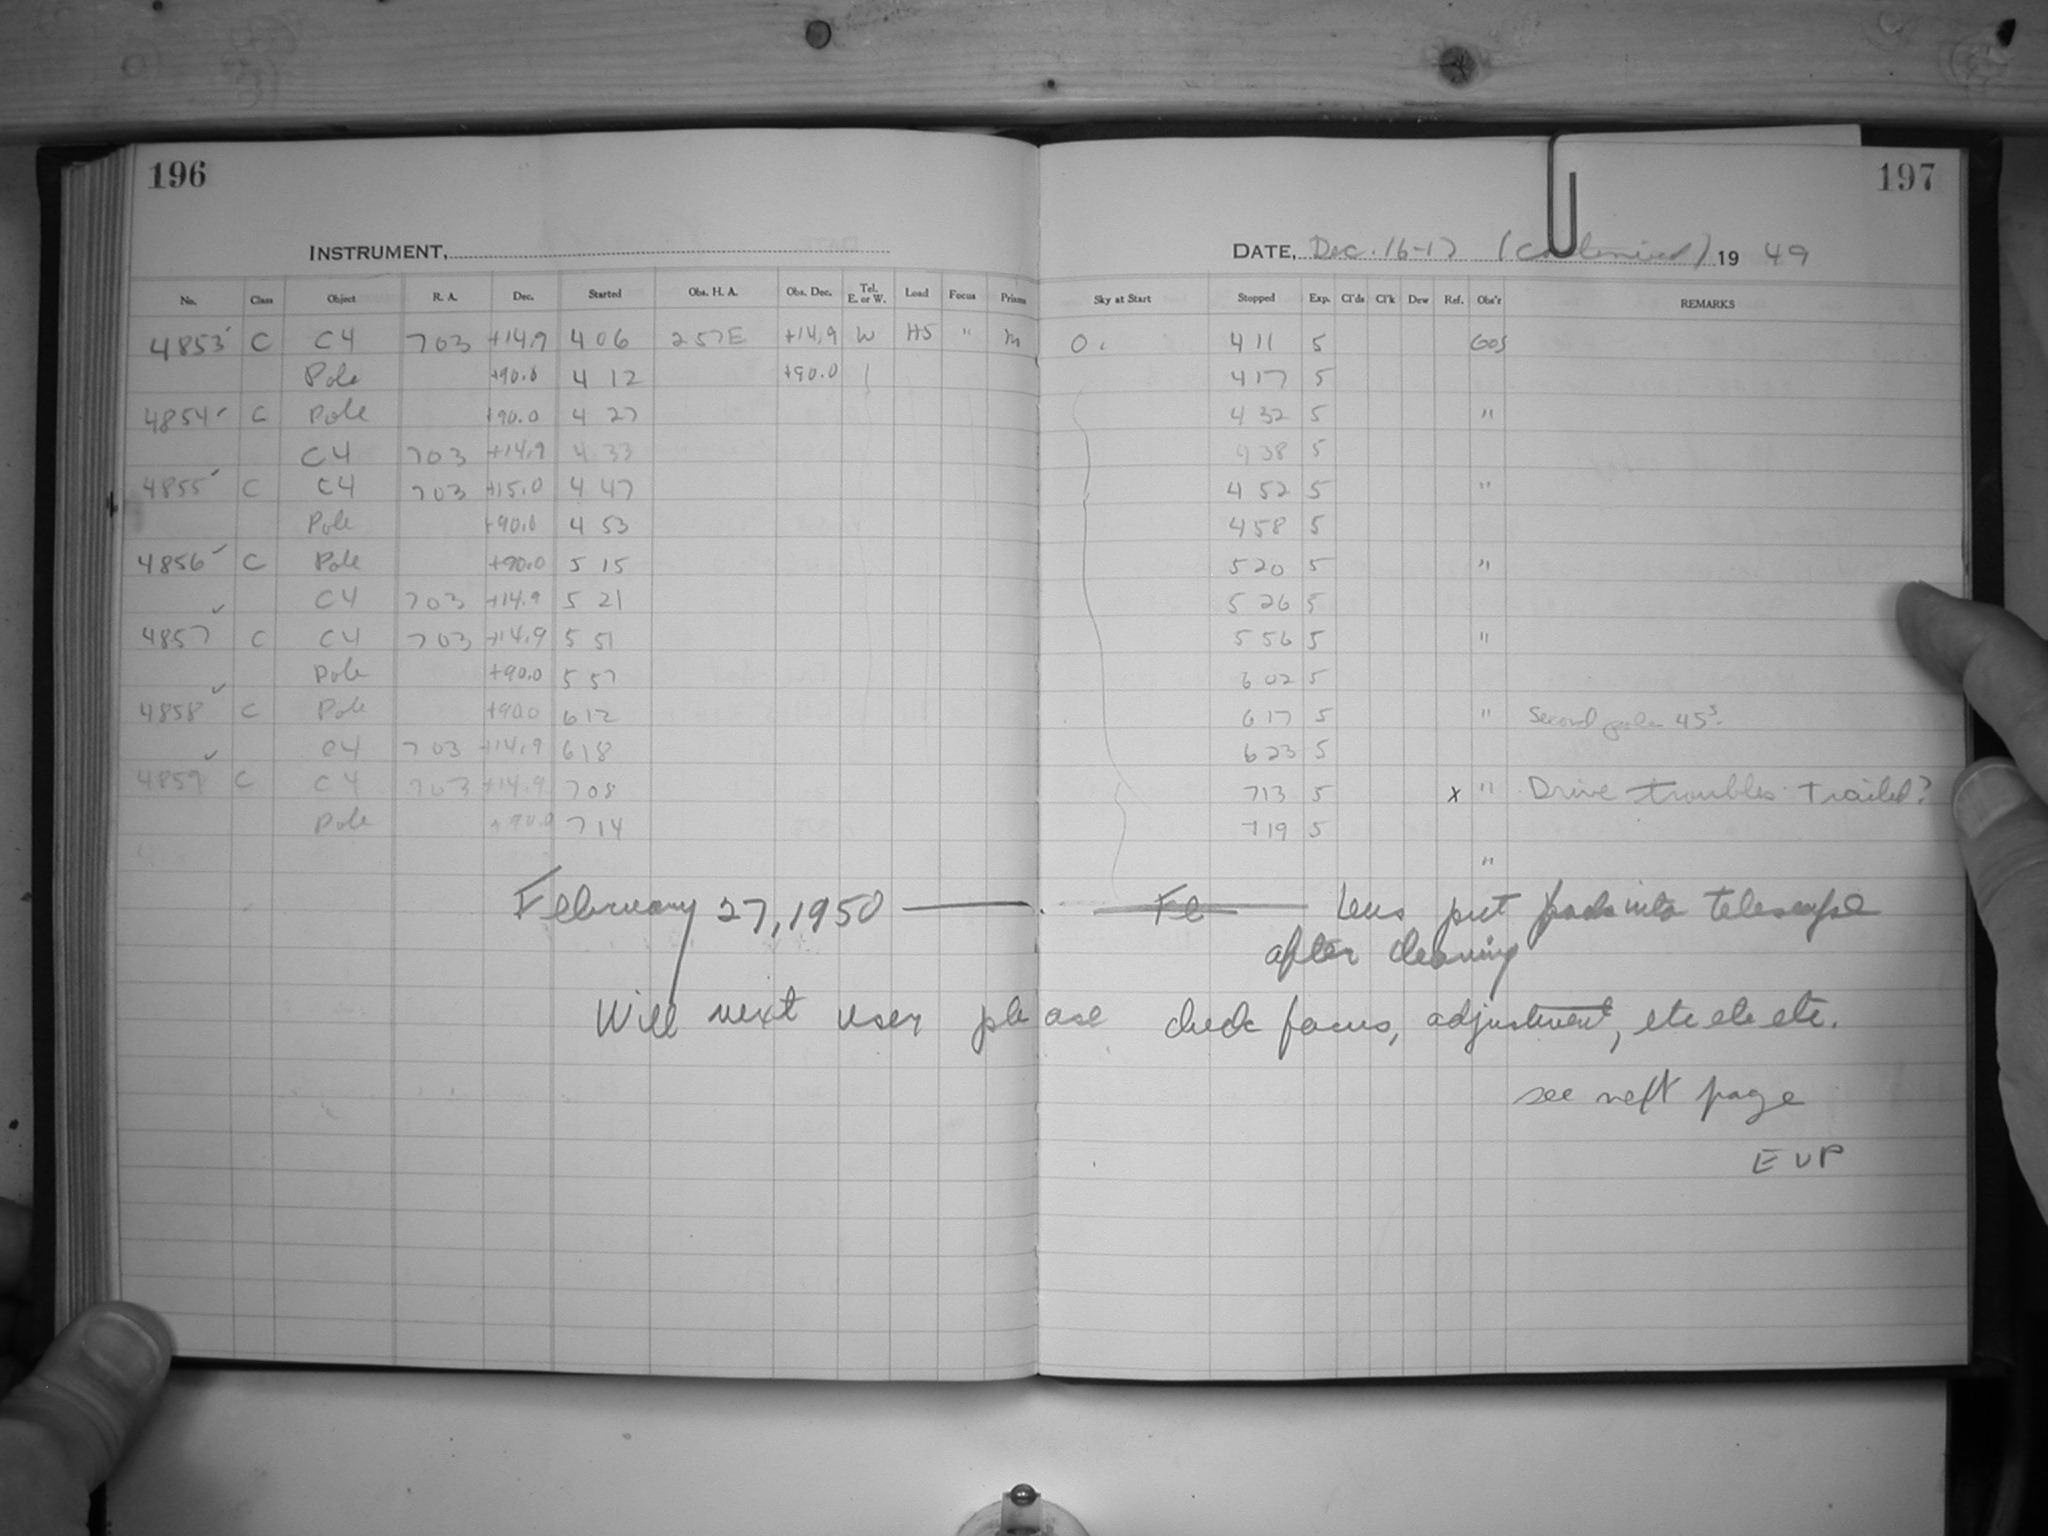 196
197
INSTRUMENT,
DATE, Dec. 16-17 (Continued) 19 49
No. Class Object R. A. Dec. Started Obs. H. A. Obs. Dec. Tel. E. or W. Load Focus Prisms Sky at Start Stopped Exp. Cl'ds Cl'k Dew Ref. Obs'r REMARKS
4853 ✓ C C4 703 +14.9 4 06 2 57E +14.9 W HS " m 0. 4 11 5
Pole +90.0 4 12 +90.0 4 17 5
4854 ✓ C Pole +90.0 4 27 4 32 5 "
C4 703 +14.9 4 33 4 38 5
4855 ✓ C C4 703 +15.0 4 47 4 52 5 "
Pole +90.0 4 53 4 58 5
4856 ✓ C Pole +90.0 5 15 5 20 5 "
C4 703 +14.9 5 21 5 26 5
4857 ✓ C C4 703 +14.9 5 51 5 56 5 "
Pole +90.0 5 57 6 02 5
4858 ✓ C Pole +90.0 6 12 6 17 5 " Second pole 45s.
C4 703 +14.9 6 18 6 23 5
4859 ✓ C C4 703 +14.9 7 08 7 13 5 x " Drive troubles. Trailed?
Pole +90.0 7 14 7 19 5
"
February 27, 1950 — Fe Lens put into telescope
after cleaning
Will next user please check focus, adjustment, etc etc etc.
see next page
EVP